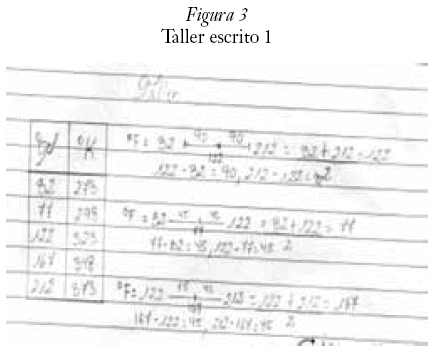 Figura 3
Taller escrito 1
°K
°F = 32 90 90 212 = 32 + 212 = 122
122
122 - 32 = 90, 212 - 122 = 90
32 273
77 298
°F = 32 45 45 122 = 32 + 122 = 77
77
122 323
77 - 32 = 45, 122 - 77 = 45 2
167 348
212 373
°F = 122 45 45 212 = 122 + 212 = 167
167
167 - 122 = 45, 212 - 167 = 45 2